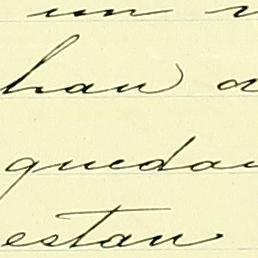 un
han
quedan
estan